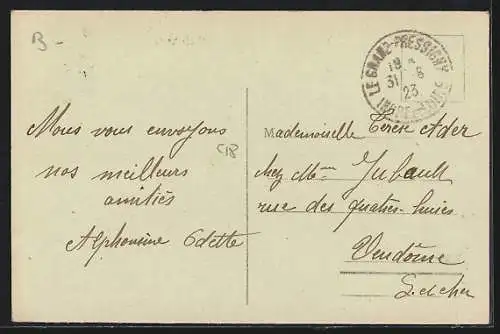 B-
LE GRAND-PRESSIGNY
19
31 - 8
23
INDRE-ET-LOIRE
Nous vous envoyons
nos meilleurs
amitiés
Alphonsine Odette
C18
Mademoiselle Terese Ader
chez Mme Jubault
rue des quatres-huies
Vendome
L. et cher